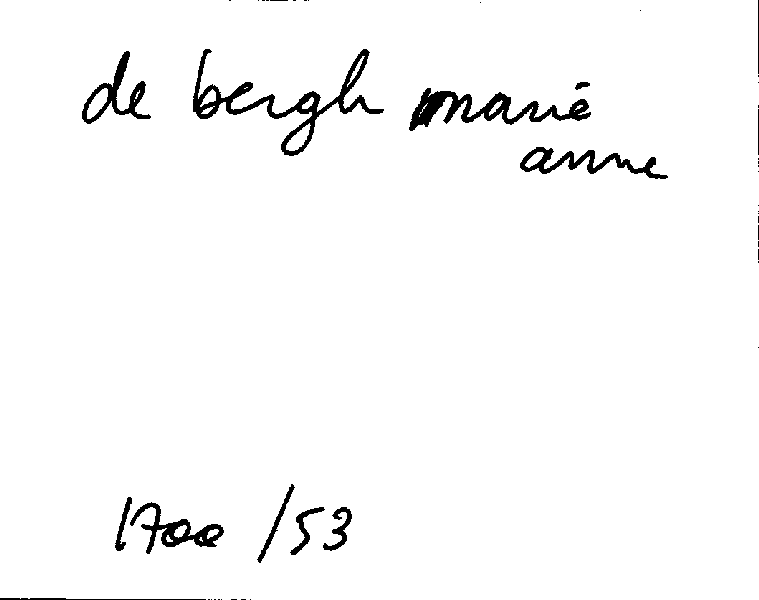 de bergh marie
anne
1700 /53